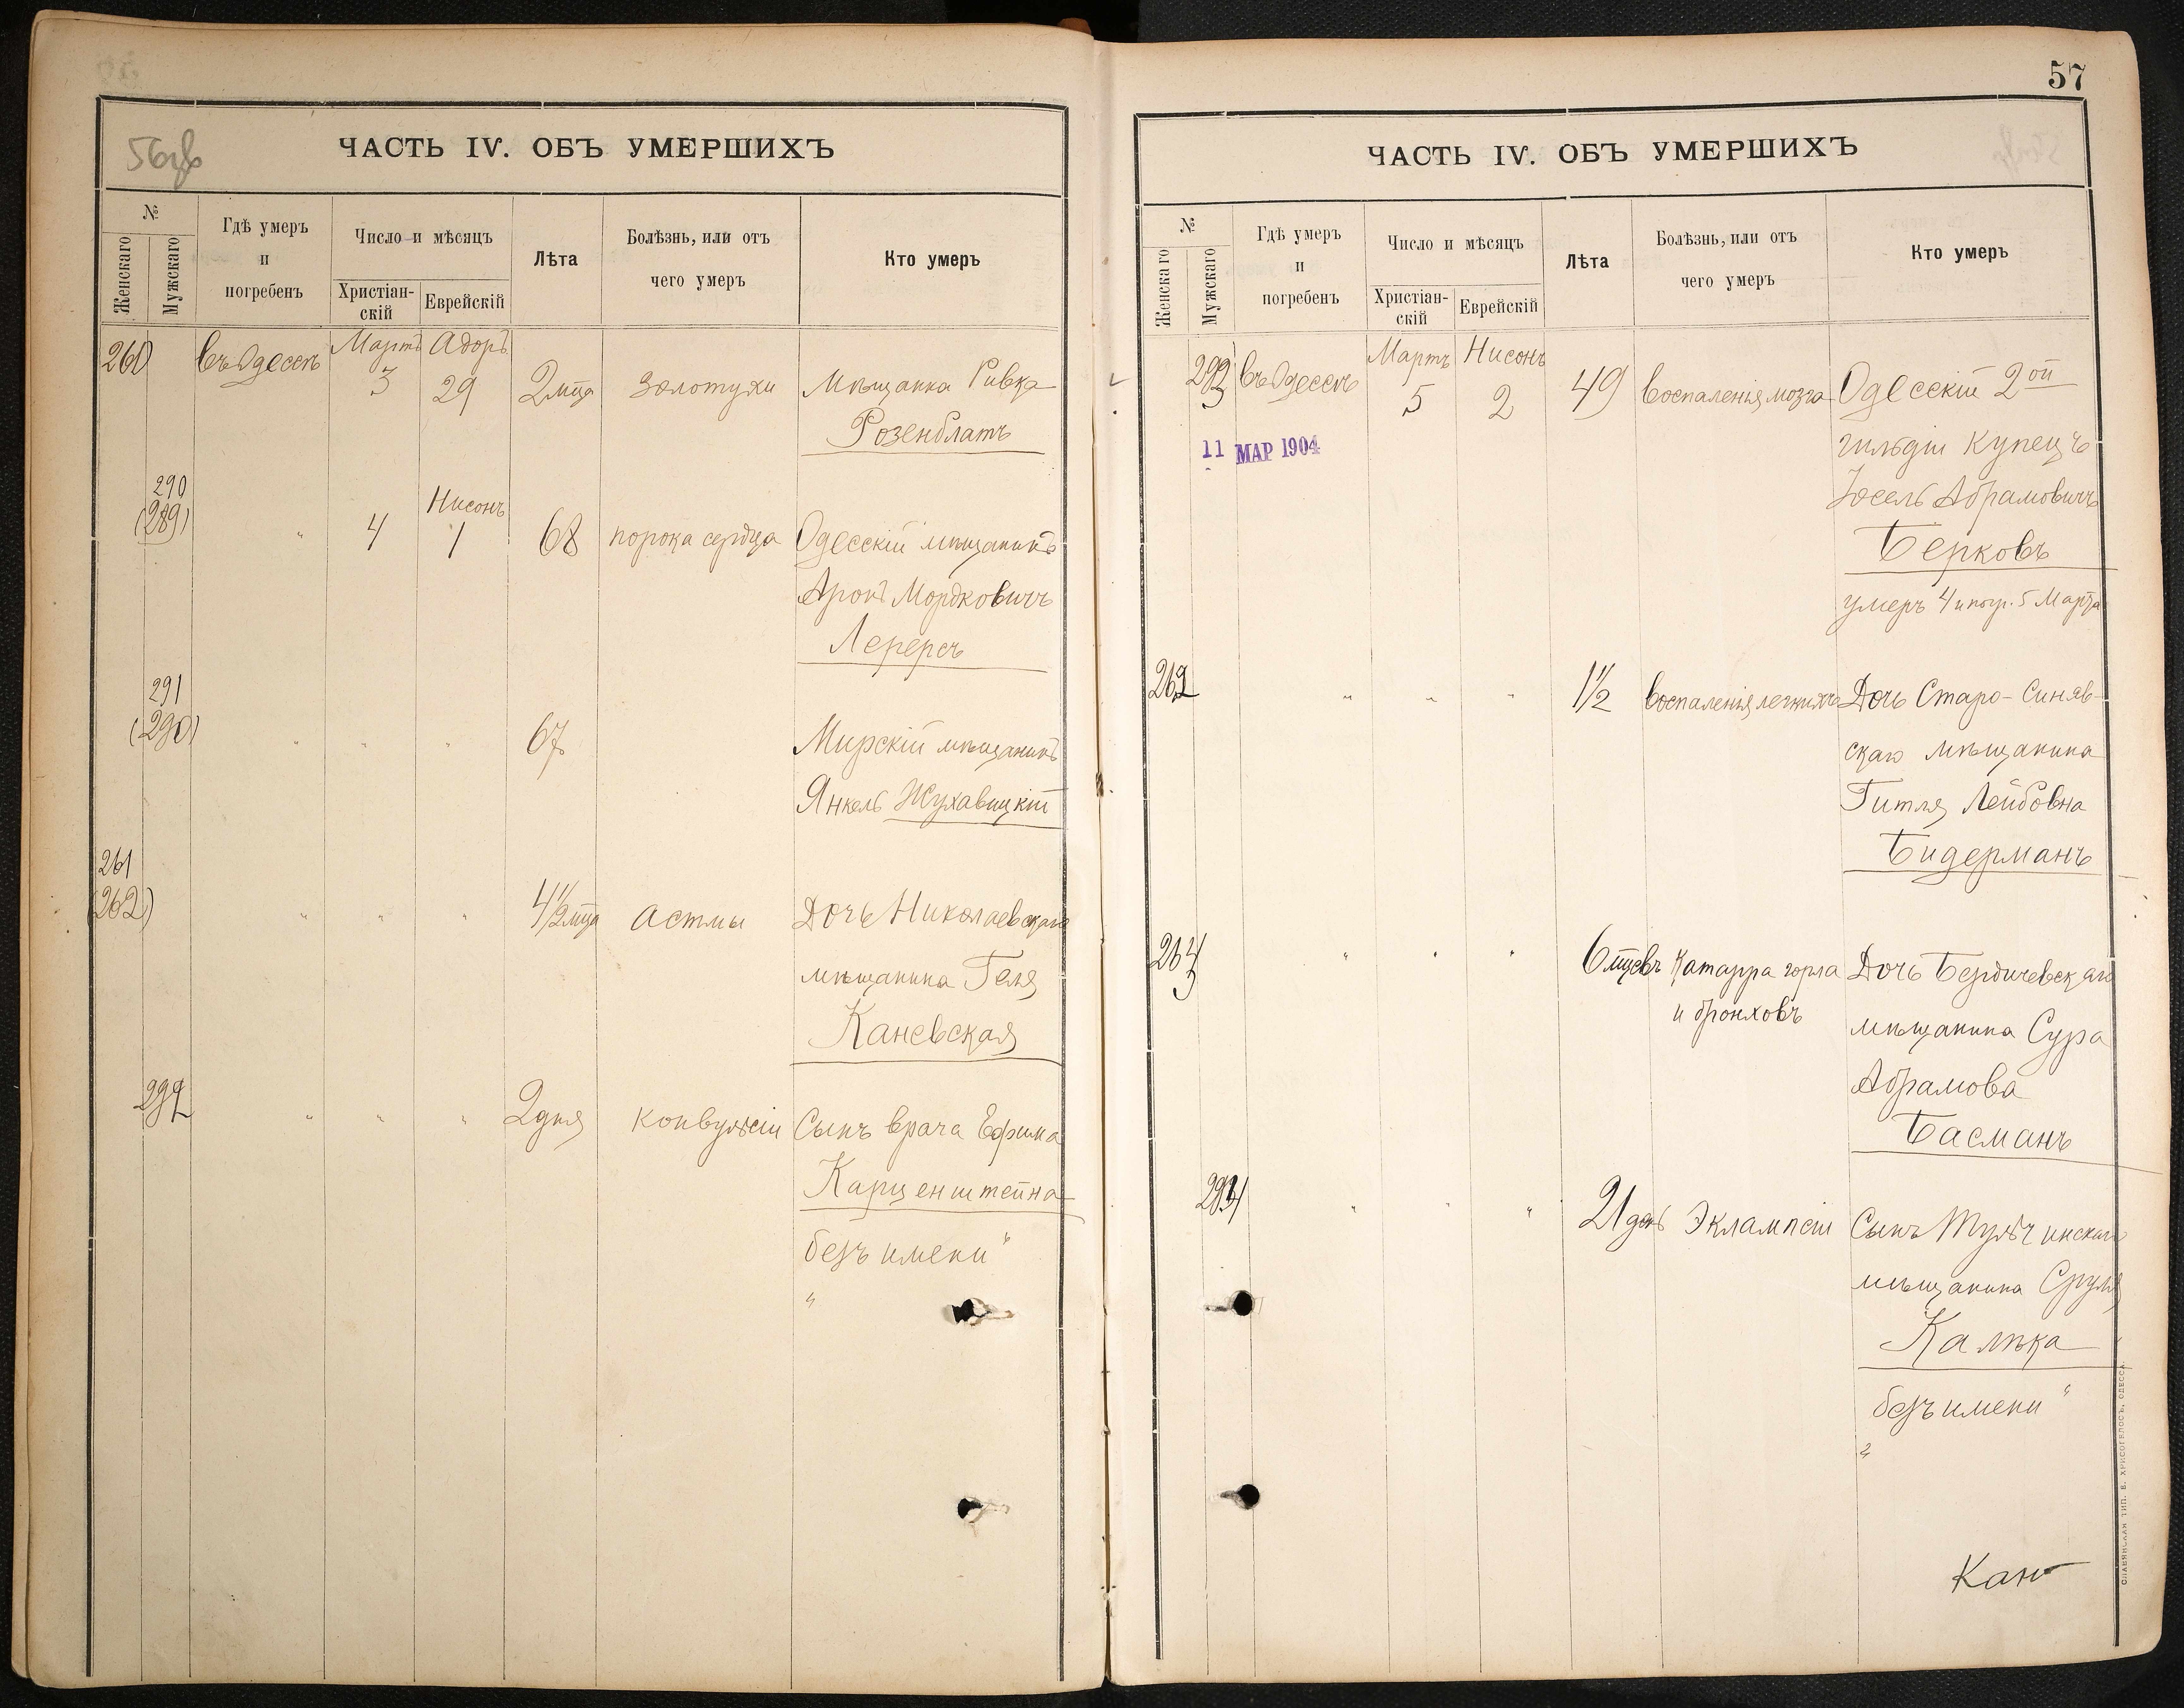 56об
ЧАСТЬ IV. ОБЪ УМЕРШИХЪ
№
Женскаго
Мужскаго
Гдѣ умеръ
и
погребенъ
Число и мѣсяцъ
Христіан-
скій
Еврейскій
Лѣта
Болѣзнь, или отъ
чего умеръ
Кто умеръ
Мартъ Адоръ
въ Одессѣ 3 29 2 мца Золотухи Мѣщанка Ривка
Розенблатъ
290
(289) " 4 Нисонъ 1 68 порока сердца Одесскій мѣщанинъ
Аронъ Мордковичъ
Лерерсъ
291
(290) " " " 67 Мирскій мѣщанинъ
Янкель Жухавицкій
261
(262) " " " 4 1/2 мца Астмы Дочь Николаевскаго
мѣщанина Геня
Каневская
292 " " " 2 дня Конвульсіи Сынъ врача Ефима
Карценштейна
безъ имени"
"
57
ЧАСТЬ IV. ОБЪ УМЕРШИХЪ
№
Женскаго
Мужскаго
Гдѣ умеръ
и
погребенъ
Число и мѣсяцъ
Христіан-
скій
Еврейскій
Лѣта
Болѣзнь, или отъ
чего умеръ
Кто умеръ
Мартъ Нисонъ
293 въ Одессѣ 5 2 49 Воспаленія мозга Одесскій 2ой
11 МАР 1904
гильдіи Купецъ
Іосель Абрамовичъ
Берковъ
умеръ 4 и погр. 5 Марта
262 " " " 1 1/2 Воспаленія легкихъ Дочь Старо-Синяв-
скаго мѣщанина
Гитля Лейбовна
Бидерманъ
263 " " " 6 мцевъ Катарра горла Дочь Бердичевскаго
и бронховъ
мѣщанина Сура
Абрамова
Басманъ
294 " " " 21 день Эклампсіи Сынъ Тульчинскаго
мѣщанина Сруля
Калѣка
безъ имени"
"
СЛАВЯНСКАЯ ТИП. Е. ХРИСОГЕЛОСЪ, ОДЕССА